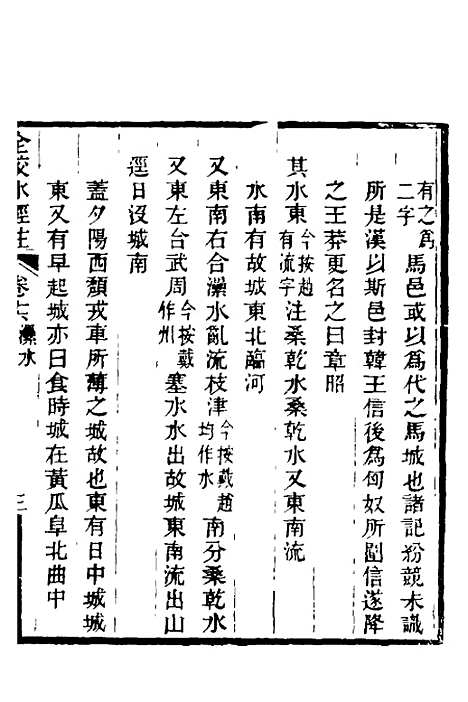 有之爲二字馬邑或以爲代之馬城也諸記紛競未識
所是漢以斯邑封韓王信後爲匈奴所圍信遂降
之王莽更名之曰章昭
其水東今按趙有流字注桑乾水桑乾水又東南流
水南有故城東北臨河
又東南右合㶟水亂流枝津今按戴趙均作水南分桑乾水
又東左合武周今按戴作州塞水水出故城東南流出山
逕日沒城南
蓋夕陽西頹戎車所薄之城故也東有日中城城
東又有早起城亦曰食時城在黃瓜阜北曲中
全校水經注 卷十三 㶟水 三